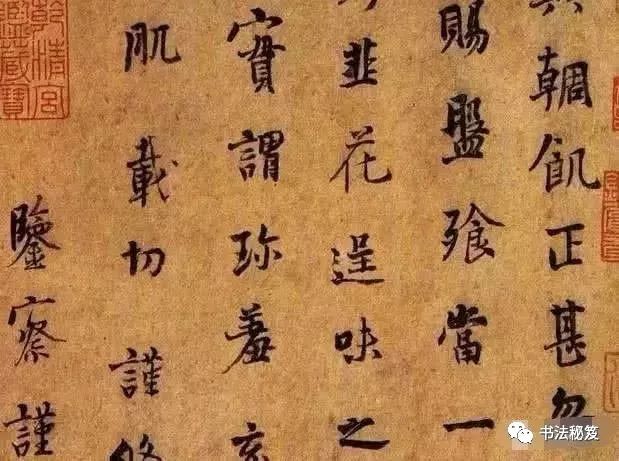 輖飢正甚忽
賜盤飧當一
韭花逞味之
實謂珎羞充
肌載切謹修
鑒察謹
乾清宮
鑑藏寶
书法秘笈